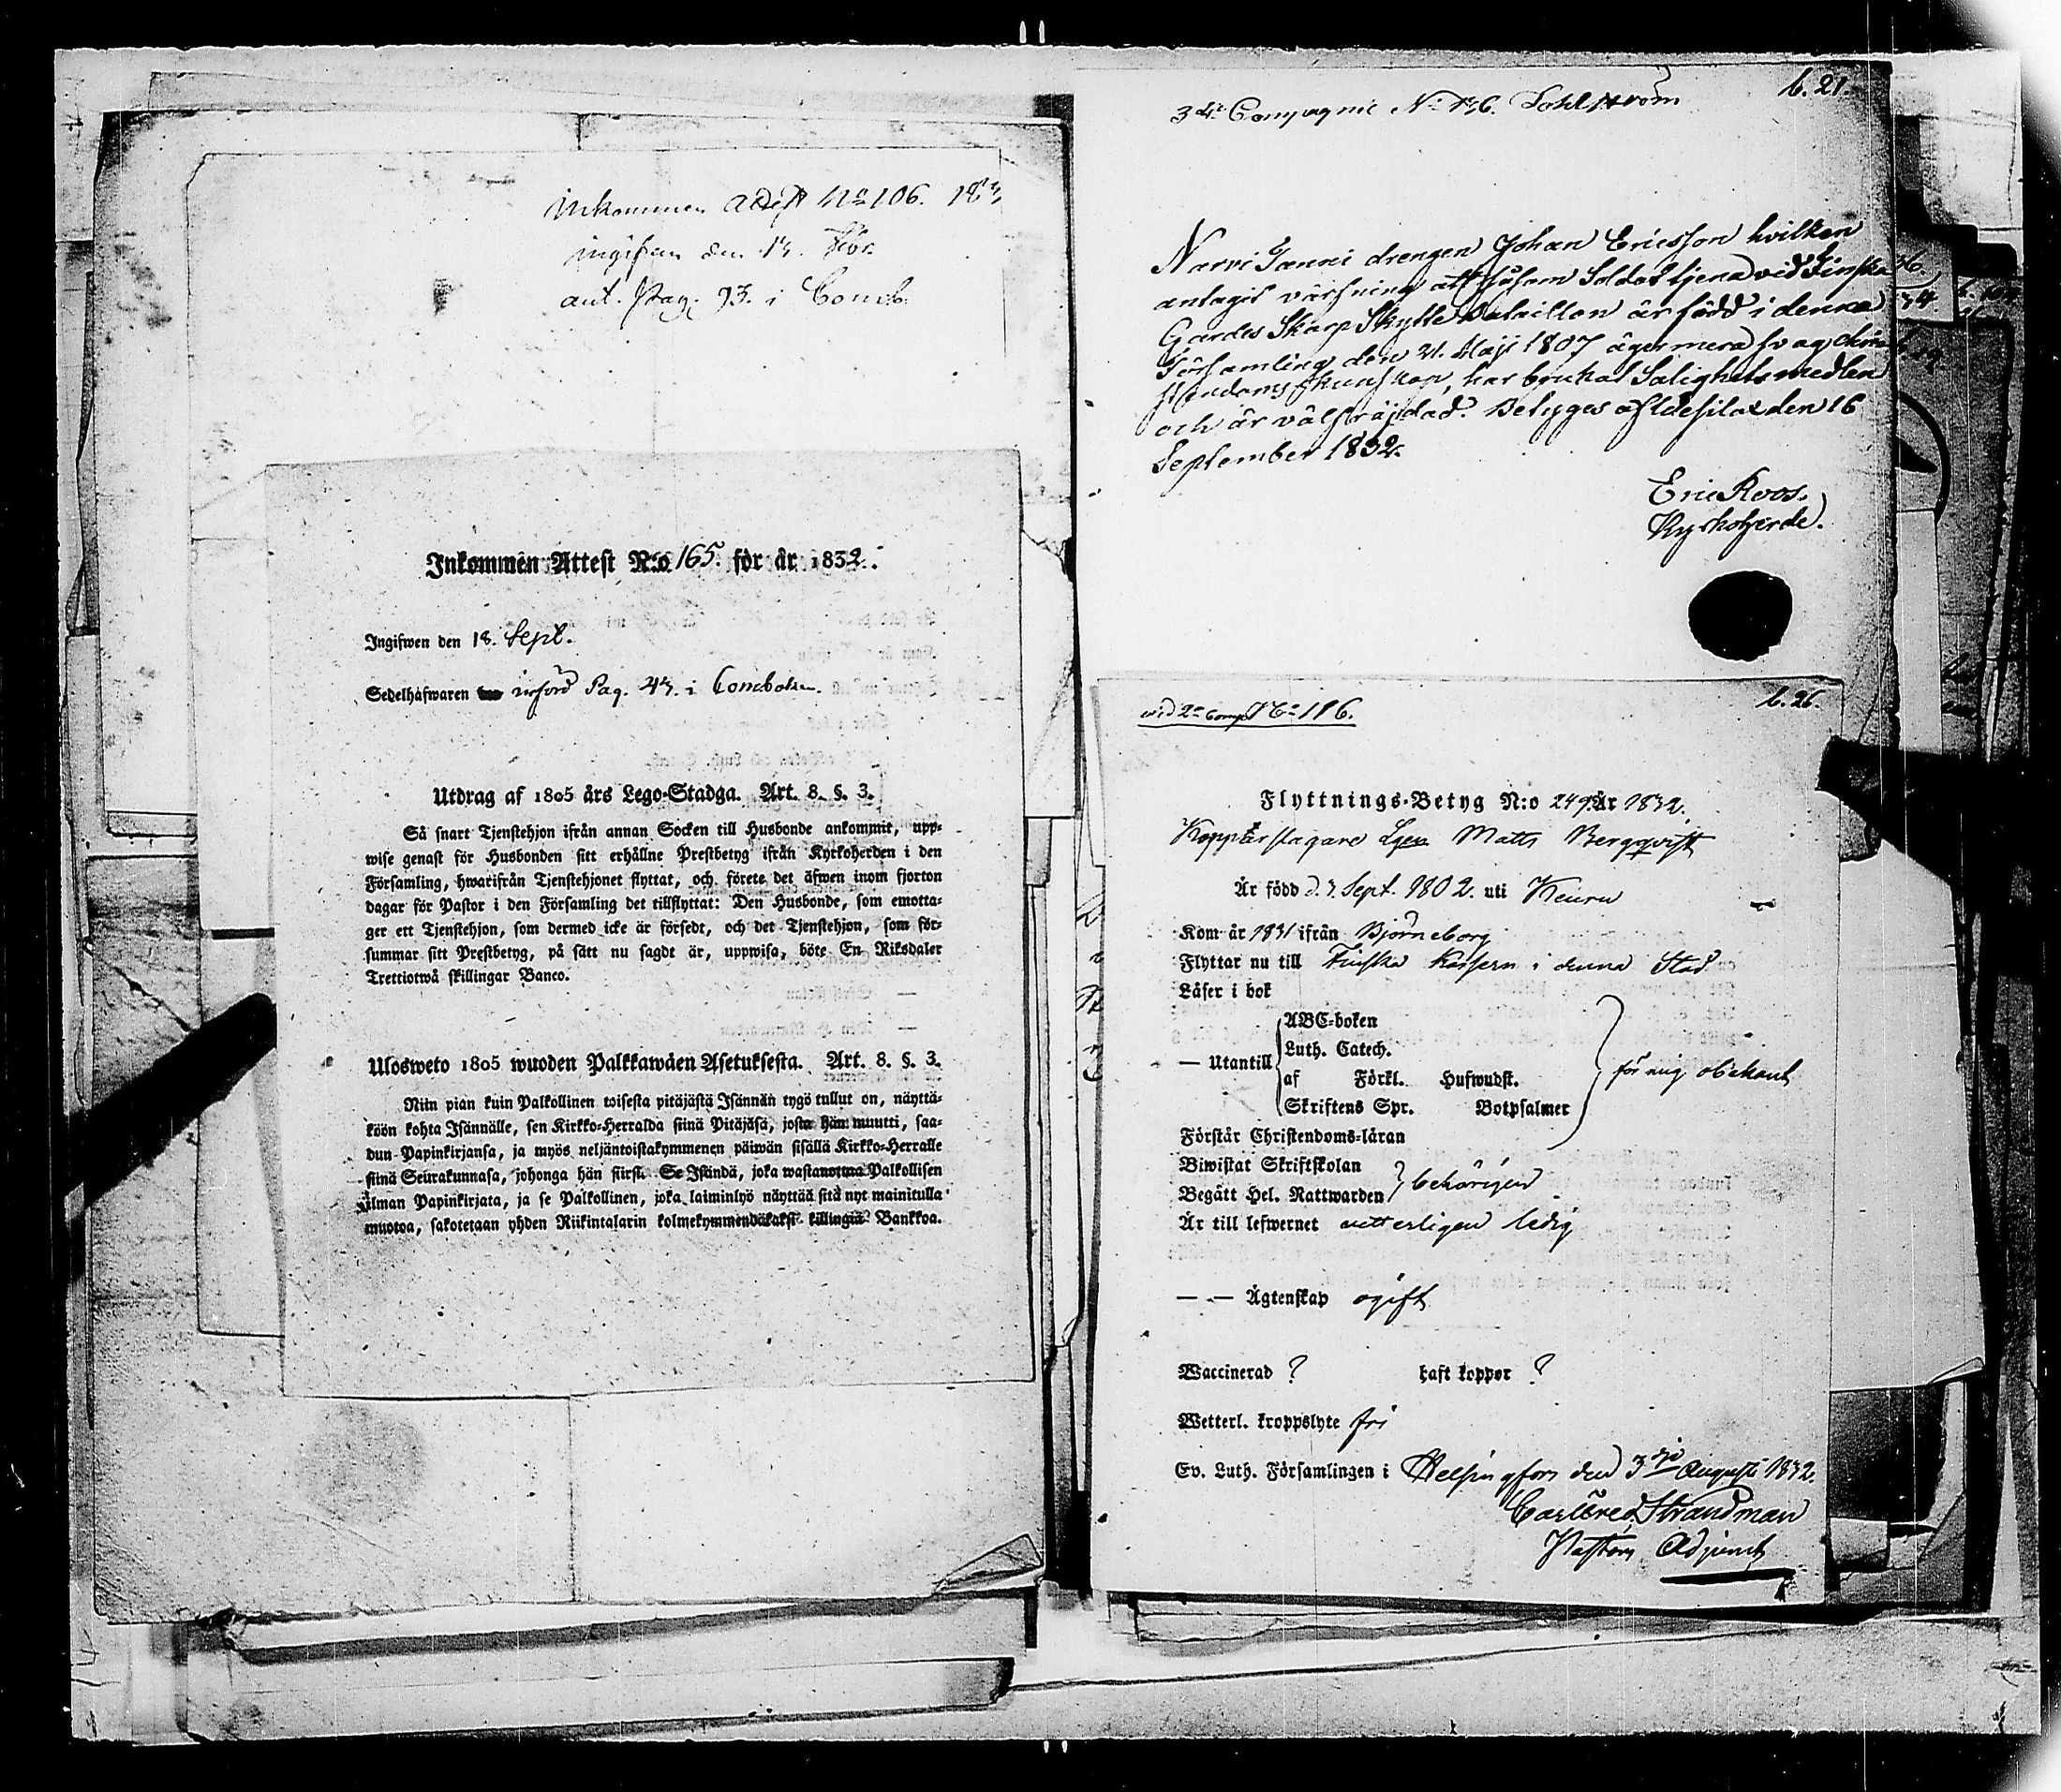 Inkommen Attest No 106. 183
ingifven den 13.
ant. Pag. 93. i Comb.
Inkommen Attest N:o 165. för år 1832.
Ingifwen den 18. Sept.
Sedelhafwaren införd Pag. 43. i Comboken.
Utdrag af 1805 års Lego-Stadga. Art. 8. §. 3.
Så snart Tjenstehjon ifrån annan Socken till Husbonde ankommit, upp-
wise genast för Husbonden sitt erhållne Prestbetyg ifrån Kyrkoherden i den
Församling, hwarifrån Tjenstehjonet flyttat, och förete det äfwen inom fjorton
dagar för Pastor i den Församling det tillflyttat: Den Husbonde, som emotta-
ger ett Tjenstehjon, som dermed icke är försedt, och det Tjenstehjon, som för-
summar sitt Prestbetyg, på sätt nu sagdt är, uppwisa, böte En Riksdaler
Trettiotwå skillingar Banco.
Ulosweto 1805 wuoden Palkkawäen Asetuksesta. Art. 8. §. 3.
Niin pian kuin Palkollinen toisesta pitäjästä Isännän tygö tullut on, näyttä-
köön kohta Isännälle, sen Kirkko-Herralda siinä Pitäjäsä, josta hän muutti, saa-
dun Papinkirjansa, ja myös neljäntoistakymmenen päiwän sisällä Kirkko-Herralle
siinä Seurakunnasa, johonga hän siirsi. Se Isändä, joka wastanottaa Palkollisen
ilman Papinkirjata, ja se Palkollinen, joka laiminlyö näyttää sitä nyt mainitulla
muotoa, sakotetaan yhden Riikintalarin kolmekymmendäkaksi killingiä Bankkoa.
b. 21.
3die Compagnie No 136. Sohlström
Narvi Janni drengen Johan Ericsson hvilken
antagit värfning att såsom Soldat tjena vid Finska
Gardes Skarp Skytte Bataillon är född i denna
Församling den 21. Maji 1807 äger mera svag chri-
stendoms kunskap, har brukat Salighets medlen
och är välfräjdad. Betyges af Idesilax den 16
September 1832.
Eric Roos.
Kyrkoherde.
b. 26.
vid 2a Comp. No 186.
Flyttnings-Betyg N:o 249 År 1832.
Kopparslagare Matts Bergqvist
Är född d. 3 Sept. 1802. uti Keuru
Kom år 1831 ifrån Björneborg
Flyttar nu till Finska Kasern i denna Stad
Läser i bok
ABC-boken
Luth. Catech.
— Utantill af Förkl. Hufwudst. för mig obekant
Skriftens Spr. Botpsalmer
Förstår Christendoms-läran
Biwistat Skriftskolan
Begått Hel. Nattwarden behörigen
Är till lefwernet vetterligen ledig
— — Ägtenskap ogift
Waccinerad ? haft koppor ?
Wetterl. kroppslyte fri
Ev. Luth. Församlingen i Helsingfors den 3die Augusti 1832.
Carl Fred. Strandman
Pastors Adjunct